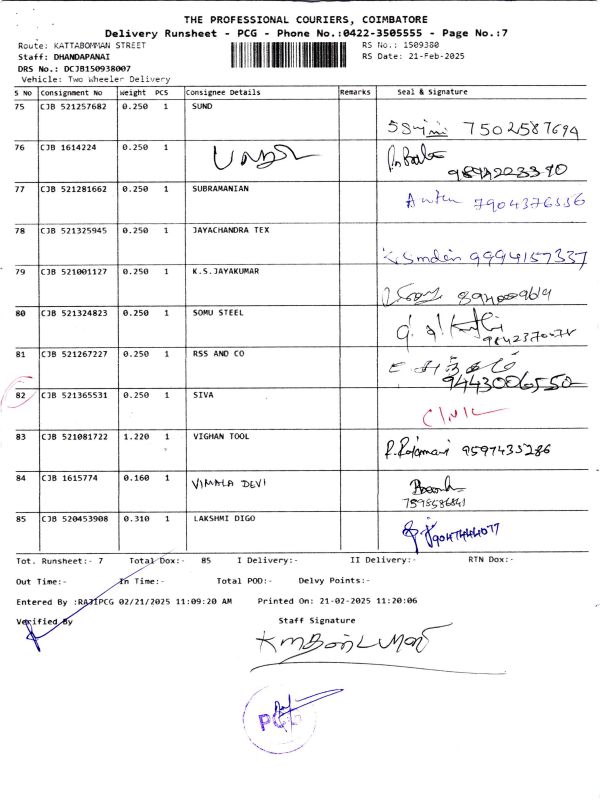 THE PROFESSIONAL COURIERS, COIMBATORE
Delivery Runsheet - PCG - Phone No.:0422-3505555 - Page No.:7
Route: KATTABOMMAN STREET RS No.: 1509380
Staff: DHANDAPANAI RS Date: 21-Feb-2025
DRS No.: DCJB150938007
Vehicle: Two Wheeler Delivery
S No Consignment No Weight PCS Consignee Details Remarks Seal & Signature
75 CJB 521257682 0.250 1 SUND
7502587694
76 CJB 1614224 0.250 1
77 CJB 521281662 0.250 1 SUBRAMANIAN
7904376536
78 CJB 521325945 0.250 1 JAYACHANDRA TEX
9994157337
79 CJB 521001127 0.250 1 K.S.JAYAKUMAR
80 CJB 521324823 0.250 1 SOMU STEEL
81 CJB 521267227 0.250 1 RSS AND CO
9443006550
82 CJB 521365531 0.250 1 SIVA
83 CJB 521081722 1.220 1 VIGHAN TOOL
9597435286
84 CJB 1615774 0.160 1 VIMALA DEVI
7598586841
85 CJB 520453908 0.310 1 LAKSHMI DIGO
Tot. Runsheet:- 7 Total Dox:- 85 I Delivery:- II Delivery:- RTN Dox:-
Out Time:- In Time:- Total POD:- Delvy Points:-
Entered By :RAJIPCG 02/21/2025 11:09:20 AM Printed On: 21-02-2025 11:20:06
Verified By Staff Signature